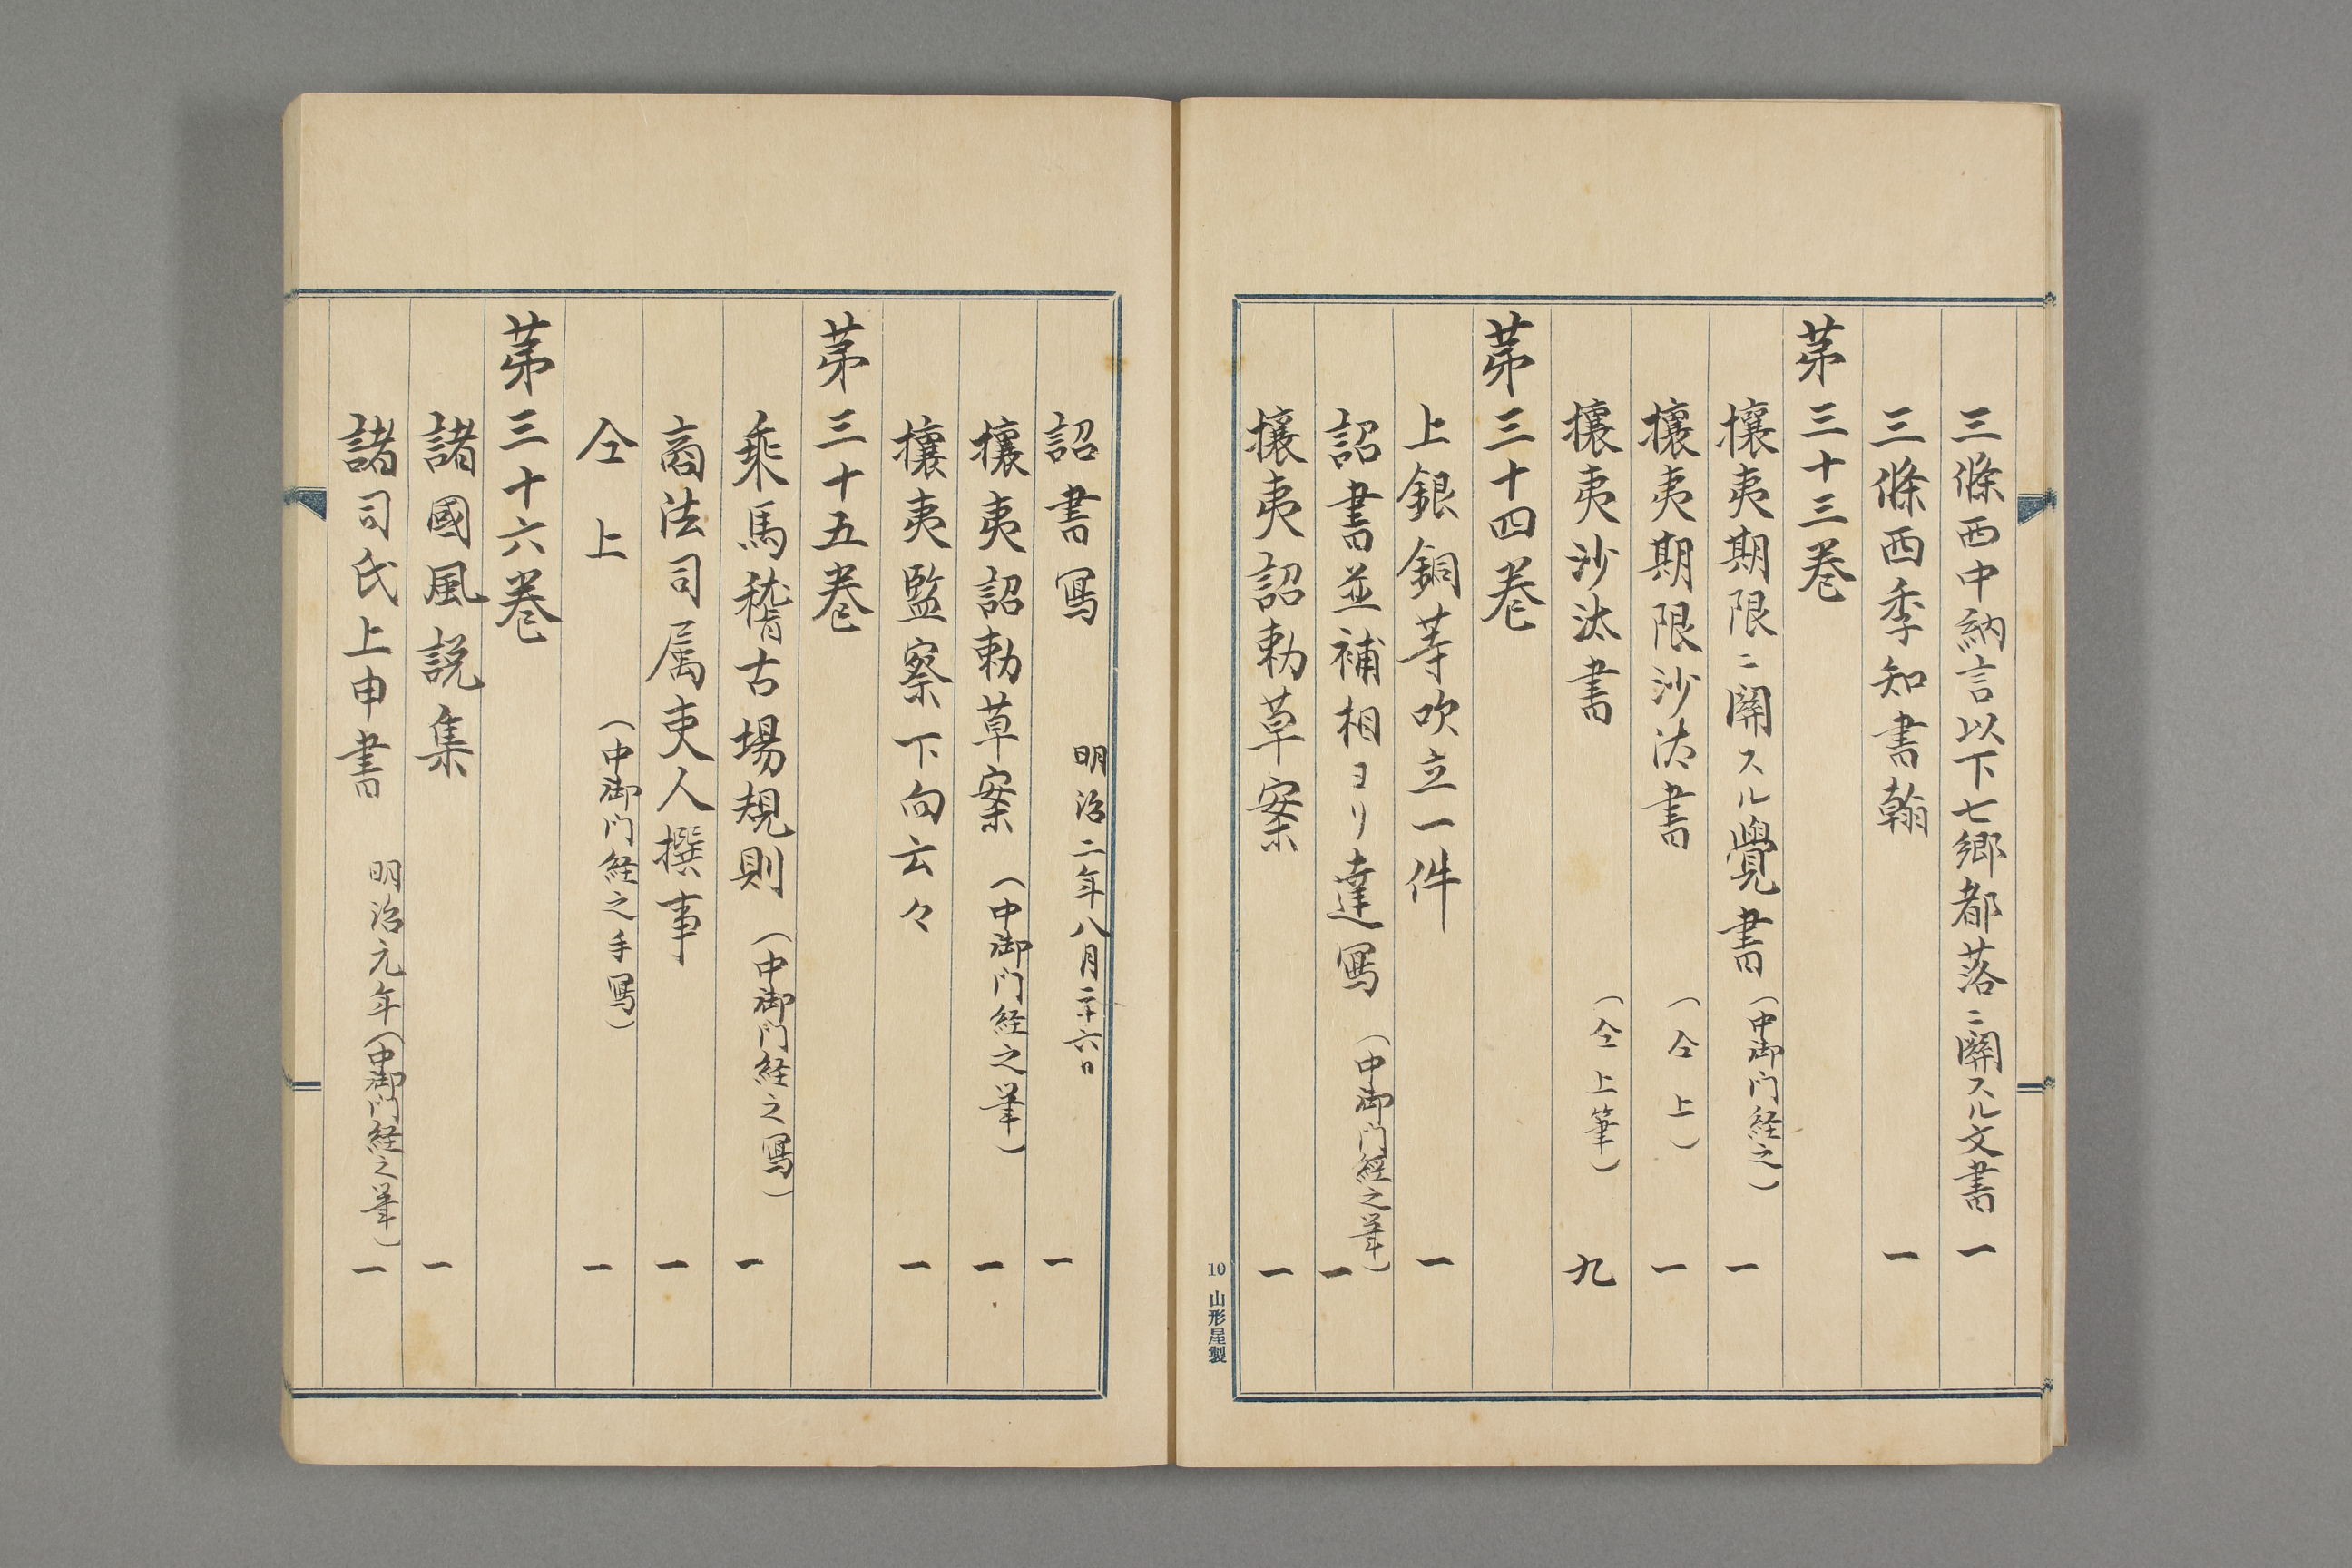 三條西中納言以下七郷都落ニ關スル文書 一
三條西季知書翰 一
第三十三巻
攘夷期限ニ關スル覺書 (中御門経之) 一
攘夷期限沙汰書 (仝上) 一
攘夷沙汰書 (仝上筆) 九
第三十四巻
上銀銅等吹立一件 一
詔書並補相ヨリ達寫 (中御門經之筆) 一
攘夷詔勅草案 一
10 山形屋製
詔書寫 明治二年八月二十六日 一
攘夷詔勅草案 (中御門経之筆) 一
攘夷監察下向云々 一
第三十五巻
乗馬稽古場規則 (中御門経之寫) 一
商法司属吏人撰事 一
仝上 (中御門経之手寫) 一
第三十六巻
諸國風説集 一
諸司氏上申書 明治元年 (中御門経之筆) 一